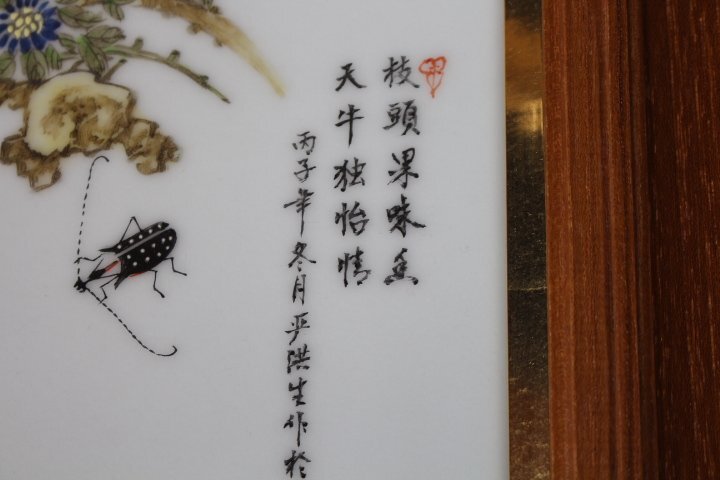 枝頭果味
天牛独怡情
丙子年冬月严洪生作於